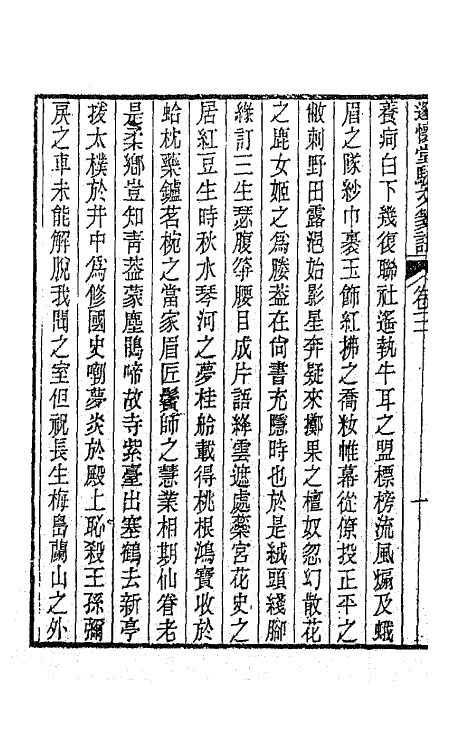 邃懷堂駢文箋註 卷三 一
養疴白下幾復聯社遙執牛耳之盟標榜流風煽及蛾
眉之隊紗巾裹玉飾紅拂之喬粧帷幕從僚投正平之
敝刺野田露浥始影星奔疑來擲果之檀奴忽幻散花
之鹿女姬之為媵葢在尚書充隱時也於是絨頭綫腳
綠訂三生瑟腹箏腰目成片語絳雲遮處蘂宮花史之
居紅豆生時秋水琴河之夢桂船載得桃根鴻寶收於
蛤枕藥鑪茗椀之當家眉匠鬢師之慧業相期仙眷老
是柔鄉豈知靑葢蒙塵鵑啼故寺紫臺出塞鶴去新亭
拔太樸於井中為修國史嘲夢炎於殿上恥殺王孫彌
戾之車未能解脫我聞之室但祝長生梅嵒蘭山之外